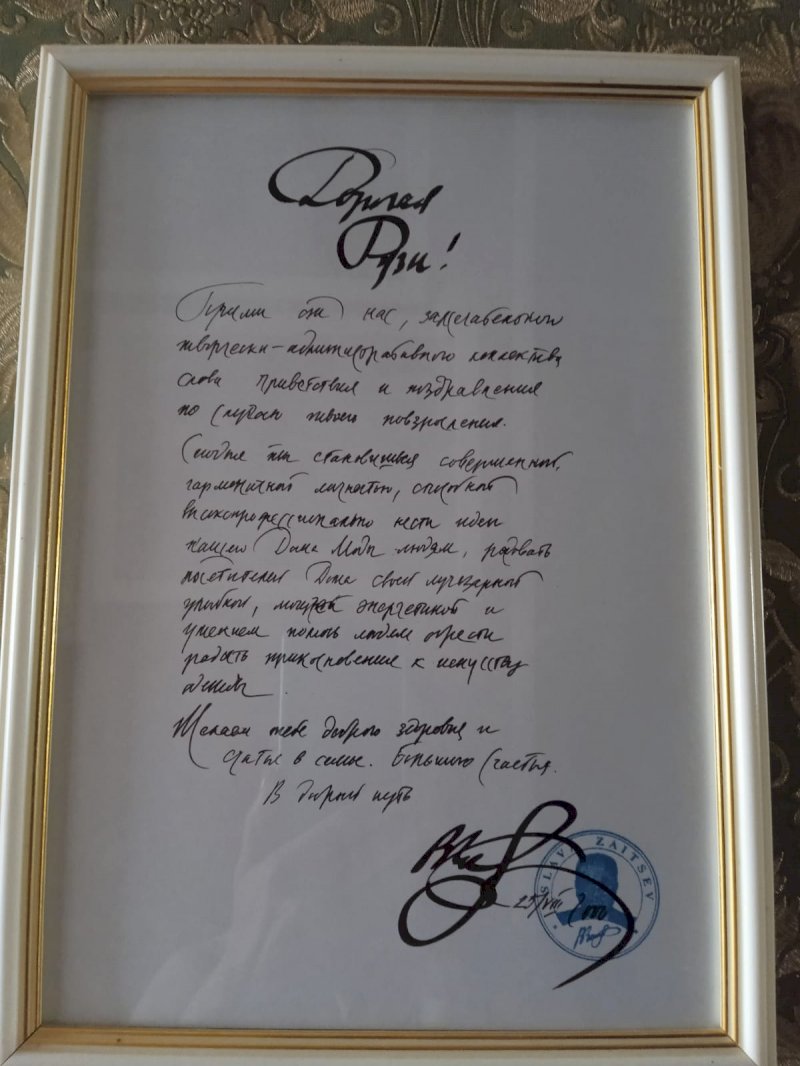 Дорогая
Рузи!
Прими от нас, замечательного
творчески-административного коллектива
слова приветствия и поздравления
по случаю твоего повзросления.
Сегодня ты становишься совершенной,
гармоничной личностью, способной
высокопрофессионально нести идеи
нашего Дома Моды людям, радовать
посетителей Дома своей лучезарной
улыбкой, мощной энергетикой и
умением помочь людям обрести
радость прикосновения к искусству
одежды.
Желаем тебе доброго здоровья и
счастья в семье. Большого счастья.
В добрый путь
SLAVA ZAITSEV
25/VIII 2000